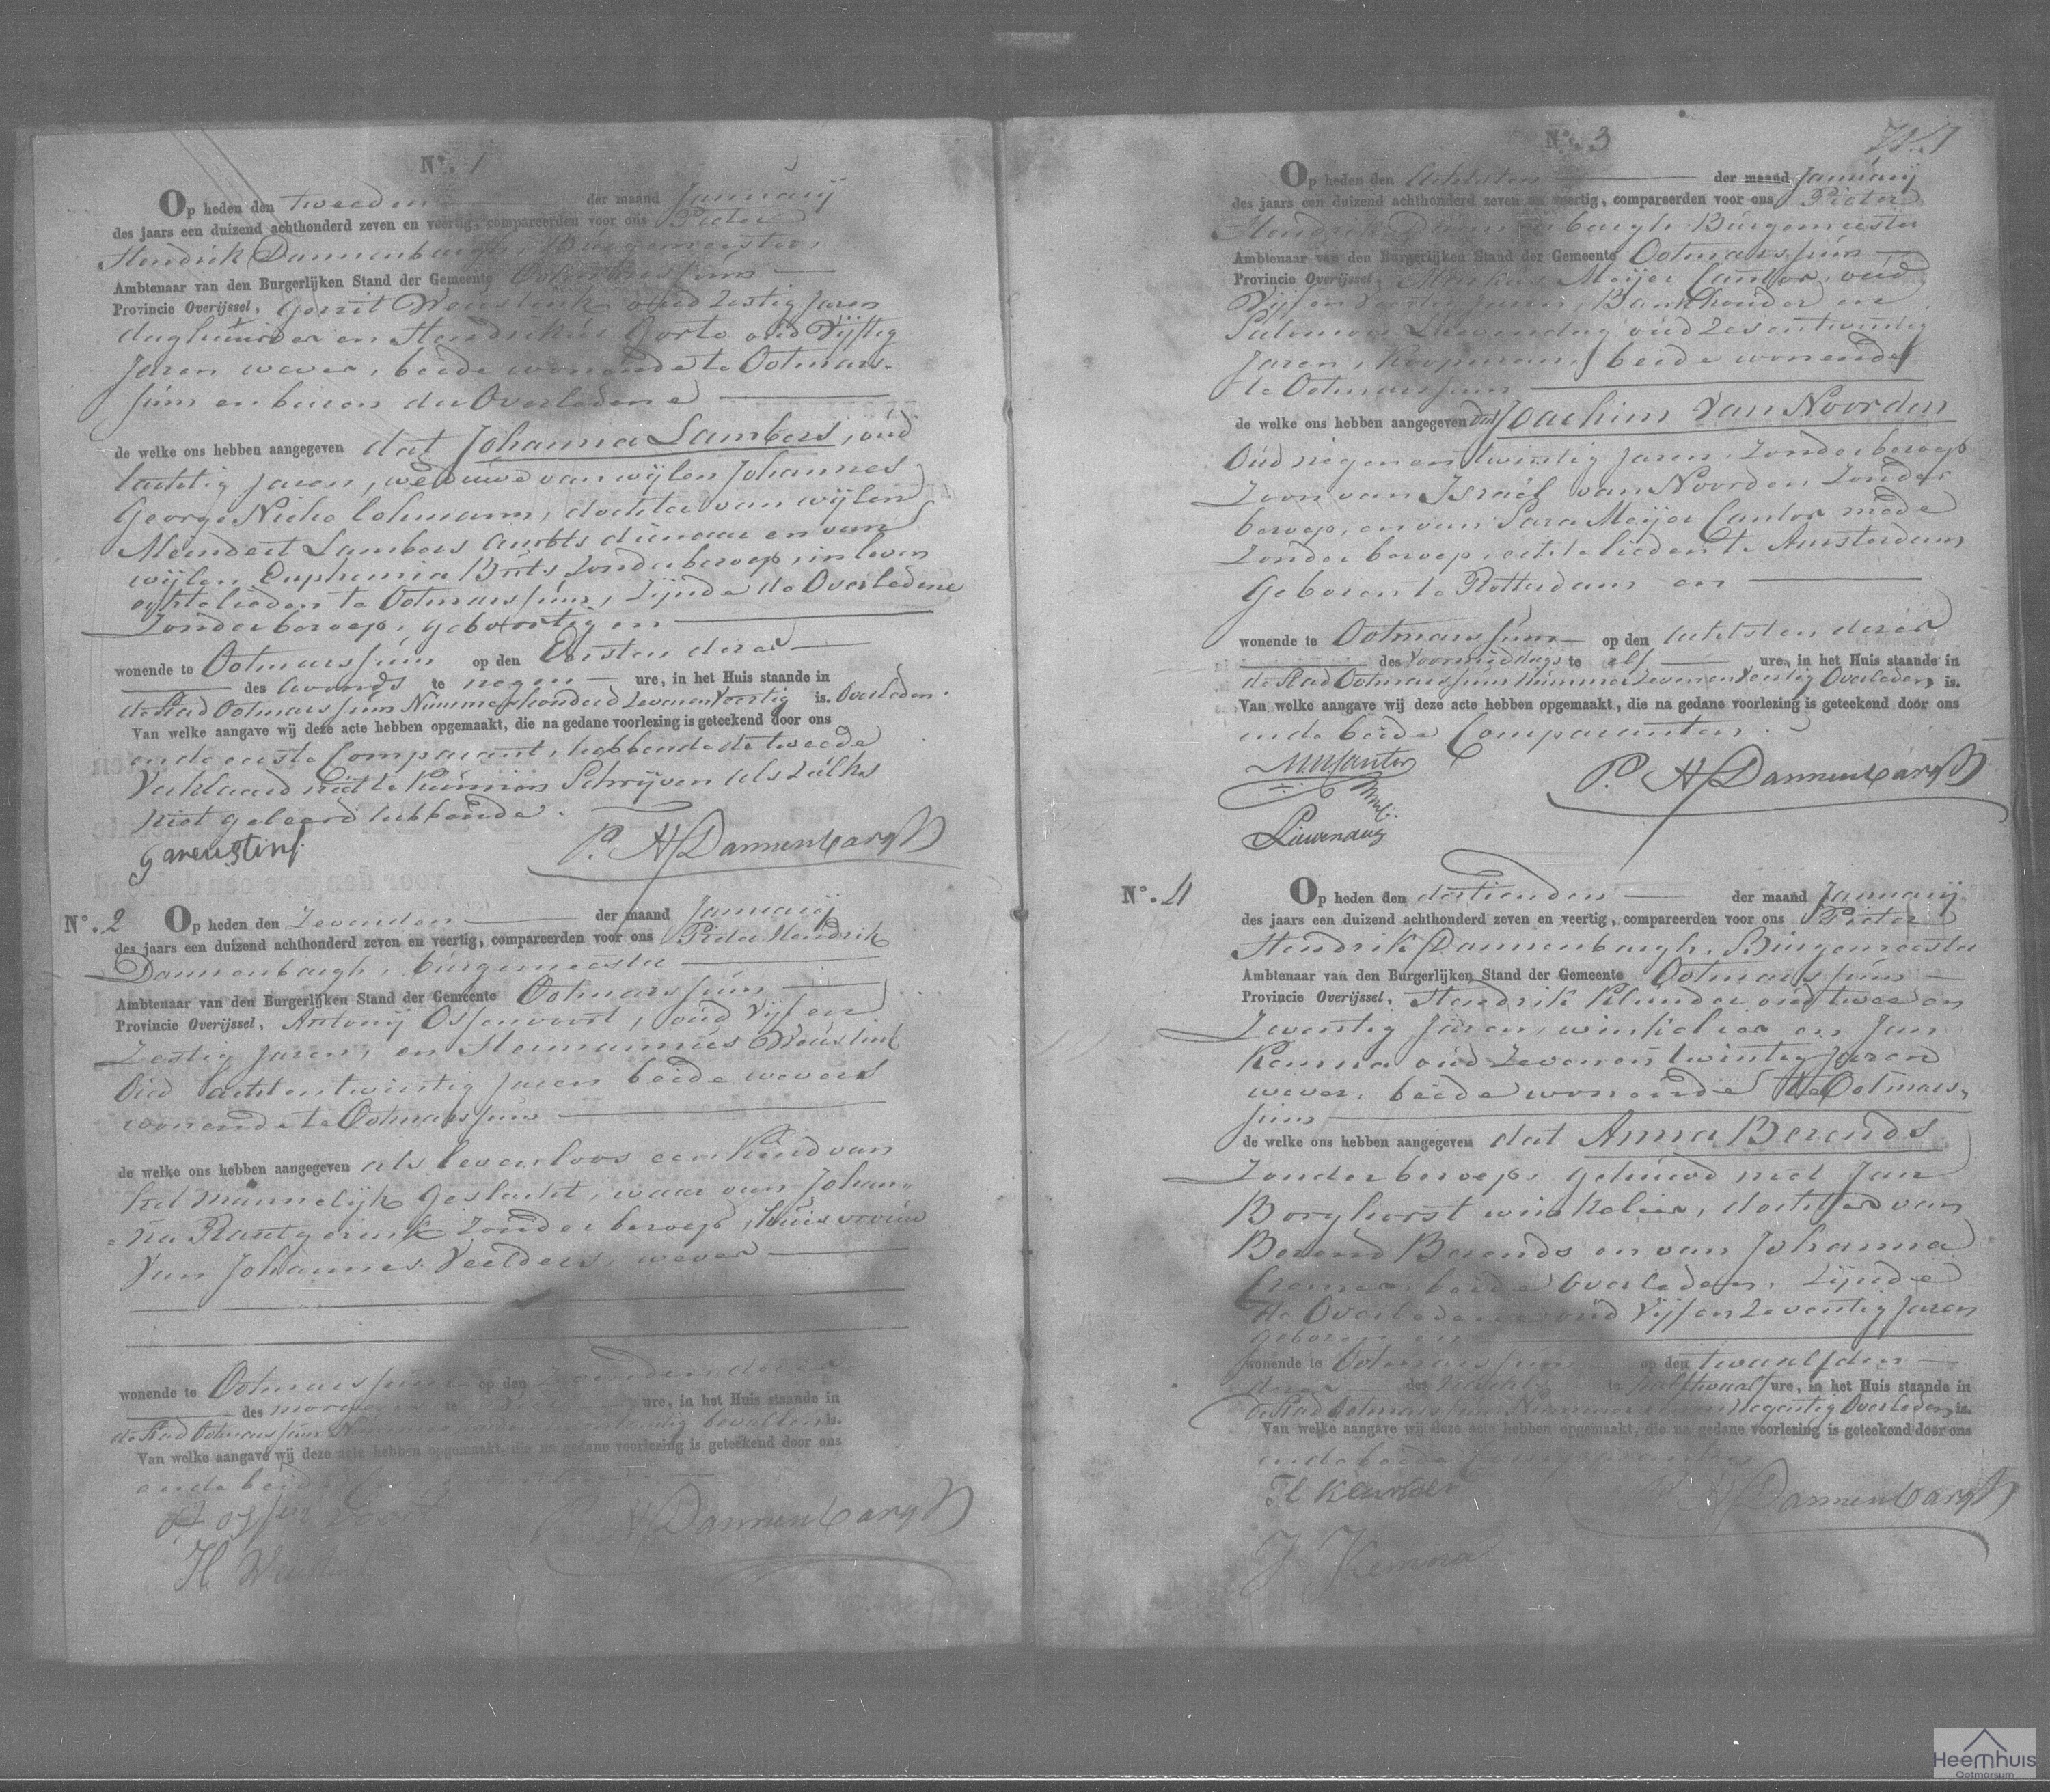 N°. 1
Op heden den tweeden der maand Januarij
des jaars een duizend achthonderd zeven en veertig, compareerden voor ons Pieter
Hendrik Dannenbargh, Burgemeester,
Ambtenaar van den Burgerlijken Stand der Gemeente Ootmarssum
Provincie Overijssel, Gerrit Weustink oud zestig Jaren
daghuurder en Hendrikus Gorte oud Vijftig
Jaren wever, beide wonende te Ootmars-
sum en buren der Overledene
de welke ons hebben aangegeven dat Johanna Lambers, oud
tachtig Jaren, weduwe van wijlen Johannes
George Lohmann, dochter van wijlen
Meindert Lambers Ambts dienaar en van
wijlen Euphemia zonder beroep, in leven
echtelieden te Ootmarssum, zijnde de Overledene
zonder beroep, geboortig en
wonende te Ootmarssum op den Eersten dezer
des avonds te negen ure, in het Huis staande in
de Stad Ootmarssum Nummer honderd zeven en Veertig is. Overleden.
Van welke aangave wij deze acte hebben opgemaakt, die na gedane voorlezing is geteekend door ons
en de eerste Comparant, hebbende de tweede
Verklaard niet te kunnen Schrijven als zulks
niet geleerd hebbende.
P. H Dannenbargh
N°. 2
Op heden den Zevenden der maand Januarij
des jaars een duizend achthonderd zeven en veertig, compareerden voor ons Pieter Hendrik
Dannenbargh, burgemeester
Ambtenaar van den Burgerlijken Stand der Gemeente Ootmarssum
Provincie Overijssel, Antonij Ossenvoort, oud Vijf en
Zestig Jaren, en Hermannus Weustink
Oud achtentwintig Jaren beide wevers
wonende te Ootmarssum
de welke ons hebben aangegeven als levenloos een Kind van
het mannelijk geslacht, waar van Johan-
na zonder beroep, huisvrouw
Van Johannes Veelders, wever
wonende te Ootmarssum op den Zevenden dezer
des morgens te ure, in het Huis staande in
de Stad Ootmarssum Nummer bevallen is.
Van welke aangave wij deze acte hebben opgemaakt, die na gedane voorlezing is geteekend door ons
en de beide
P H Dannenbargh
N°. 3
Op heden den Achtsten der maand Januarij
des jaars een duizend achthonderd zeven en veertig, compareerden voor ons Pieter
Hendrik Dannenbargh Burgemeester
Ambtenaar van den Burgerlijken Stand der Gemeente Ootmarssum
Provincie Overijssel, Meijer Cantor, oud
Vijf en Veertig Jaren, Bankhouder en
Salomon Lievendag oud zesentwintig
Jaren, Koopman, beide wonende
te Ootmarssum
de welke ons hebben aangegeven dat Joachim Van Noorden
Oud negen en twintig Jaren, zonder beroep
Zoon van Israël van Noorden zonder
beroep, en van Sara Meijer Cantor mede
zonder beroep, echtelieden te Amsterdam
Geboren te Rotterdam en
wonende te Ootmarssum op den achtsten dezer
des Voormiddags te elf ure, in het Huis staande in
de Stad Ootmarssum Nummer zeven en Overleden, is.
Van welke aangave wij deze acte hebben opgemaakt, die na gedane voorlezing is geteekend door ons
en de beide Comparanten.
P. H Dannenbargh
Lievendag
N°. 4
Op heden den dertienden der maand Januarij
des jaars een duizend achthonderd zeven en veertig, compareerden voor ons Pieter
Hendrik Dannenbargh, Burgemeester
Ambtenaar van den Burgerlijken Stand der Gemeente Ootmarssum
Provincie Overijssel, Hendrik Klunder oud twee en
Zeventig Jaren, winkelier en Jan
Kemna oud Zevenentwintig Jaren
wever, beide wonende te Ootmars-
sum
de welke ons hebben aangegeven dat Anna Berends
zonder beroep, gehuwd met Jan
Borghorst winkelier, dochter van
Berend Berends en van Johanna
Cramer, beide Overleden, zijnde
de Overledene oud Vijf en Zeventig Jaren
geboren en
wonende te Ootmarssum op den twaalfden
dezer des nachts te half twaalf ure, in het Huis staande in
de Stad Ootmarssum Nummer negentig Overleden, is.
Van welke aangave wij deze acte hebben opgemaakt, die na gedane voorlezing is geteekend door ons
en de beide Comparanten
H Klunder
P H Dannenbargh
J Kemna
Heemhuis
Ootmarsum